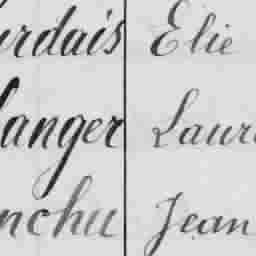 urdais Elie
langer Laur
nchu Jean